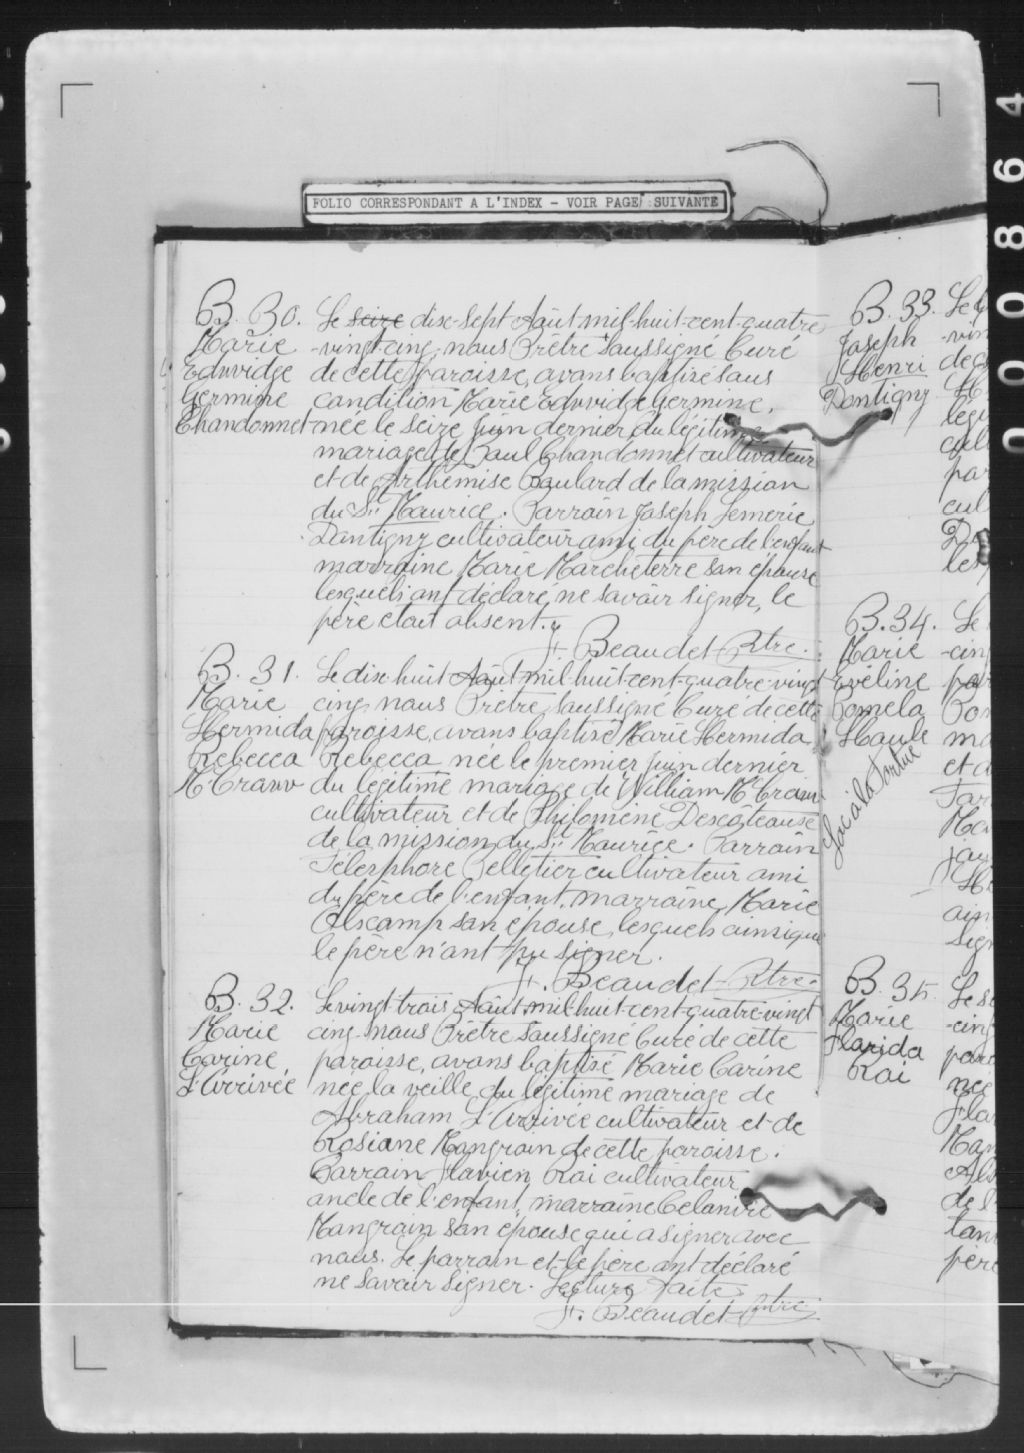 FOLIO CORRESPONDANT A L'INDEX - VOIR PAGE SUIVANTE
B. 30.
Marie
Edwidge
Germine
Chandonnet
Le seize dix-sept Août mil-huit-cent-quatre
-vingt-cinq, nous Prêtre Soussigné Curé
de cette paroisse, avons baptisé sous
condition Marie Edwidge Germine,
née le seize juin dernier, du légitime
mariage de Paul Chandonnet cultivateur
et de Arthémise Poulard de la mission
du St Maurice. Parrain Joseph Lemerie
Dontigny cultivateur ami du père de l'enfant
marraine Marie Marcheterre son épouse
lesquels ont déclaré ne savoir signer, le
père était absent.
J. Beaudet Ptre.
B. 31.
Marie
Hermida
Rebecca
McCraw
Le dix-huit Août mil-huit-cent-quatre-vingt
cinq nous Prêtre Soussigné Curé de cette
paroisse, avons baptisé Marie Hermida
Rebecca née le premier juin dernier
du légitime mariage de William McCraw
cultivateur et de Philomène Descôteause
de la mission du St Maurice. Parrain
Télesphore Pelletier cultivateur ami
du père de l'enfant, marraine Marie
Alscamp son épouse, lesquels ainsi que
le père n'ont pu signer.
J. Beaudet Ptre.
B. 32.
Marie
Carine
L'Arrivée
Le vingt-trois Août mil-huit-cent-quatre-vingt
cinq nous Prêtre Soussigné Curé de cette
paroisse, avons baptisé Marie Carine
née la veille du légitime mariage de
Abraham L'Arrivée cultivateur et de
Rosiane Mongrain de cette paroisse.
Parrain Flavien Roi cultivateur
oncle de l'enfant, marraine Celanire
Mongrain son épouse qui a signer avec
nous. Le parrain et le père ont déclaré
ne savoir signer. Lecture faite
J. Beaudet Ptre
B. 33.
Joseph
Henri
Dontigny
B. 34.
Marie
Eveline
Pomela
Haule
Lac à la Tortue
B. 35
Marie
Florida
Roi
000864